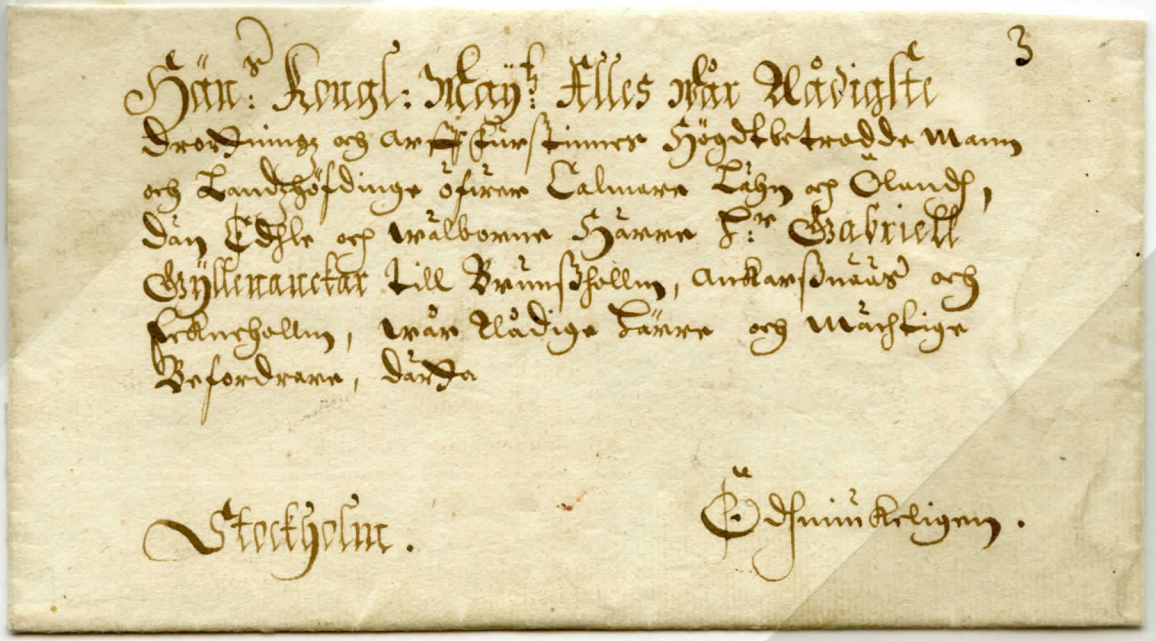 3
Hänˢ: Kongl: Maÿᵗᶻ: Alles wår Nådigste
Drottningz och Arff Furstinnes Högdtbetrodde Mann
och Landzhöfdinge öfwer Calmare Lähn och Ölandh,
dän Edhle och wälborne Härre H:ʳ Gabriell
Gyllenanckar till Brunßhollm, Ankarßnääs och
hollm, wår Nådige Härre och Mächtige
Befordrare, dätta
Stockholm.
Ödhmiukeligen.